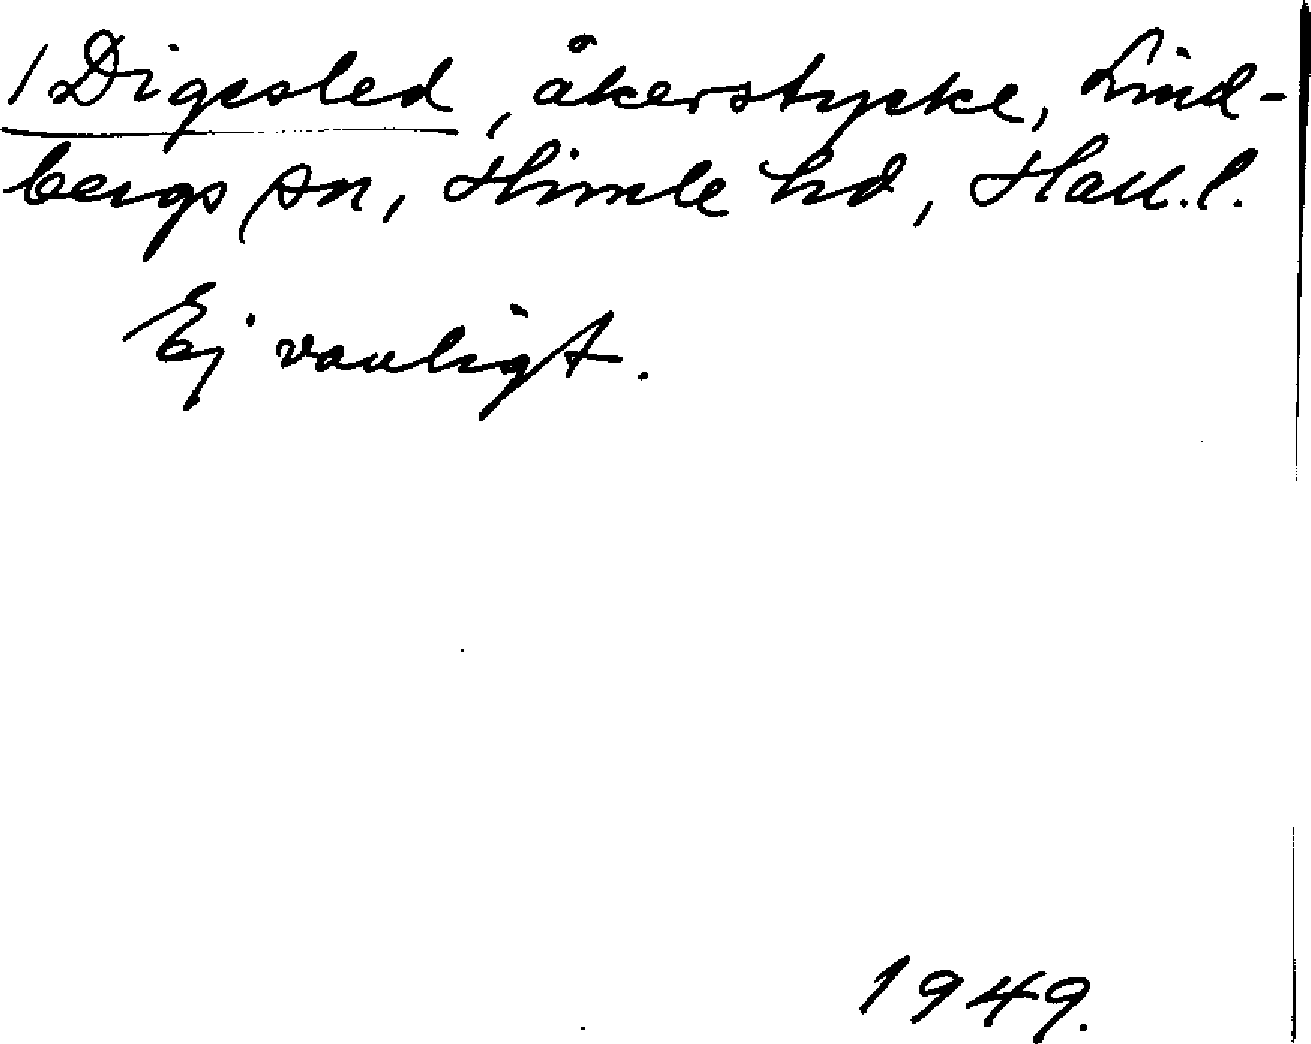 /Digesled, åkerstycke, Lind-
bergs sn, Himle hd, Hall.l.
Ej vanligt.
1949.